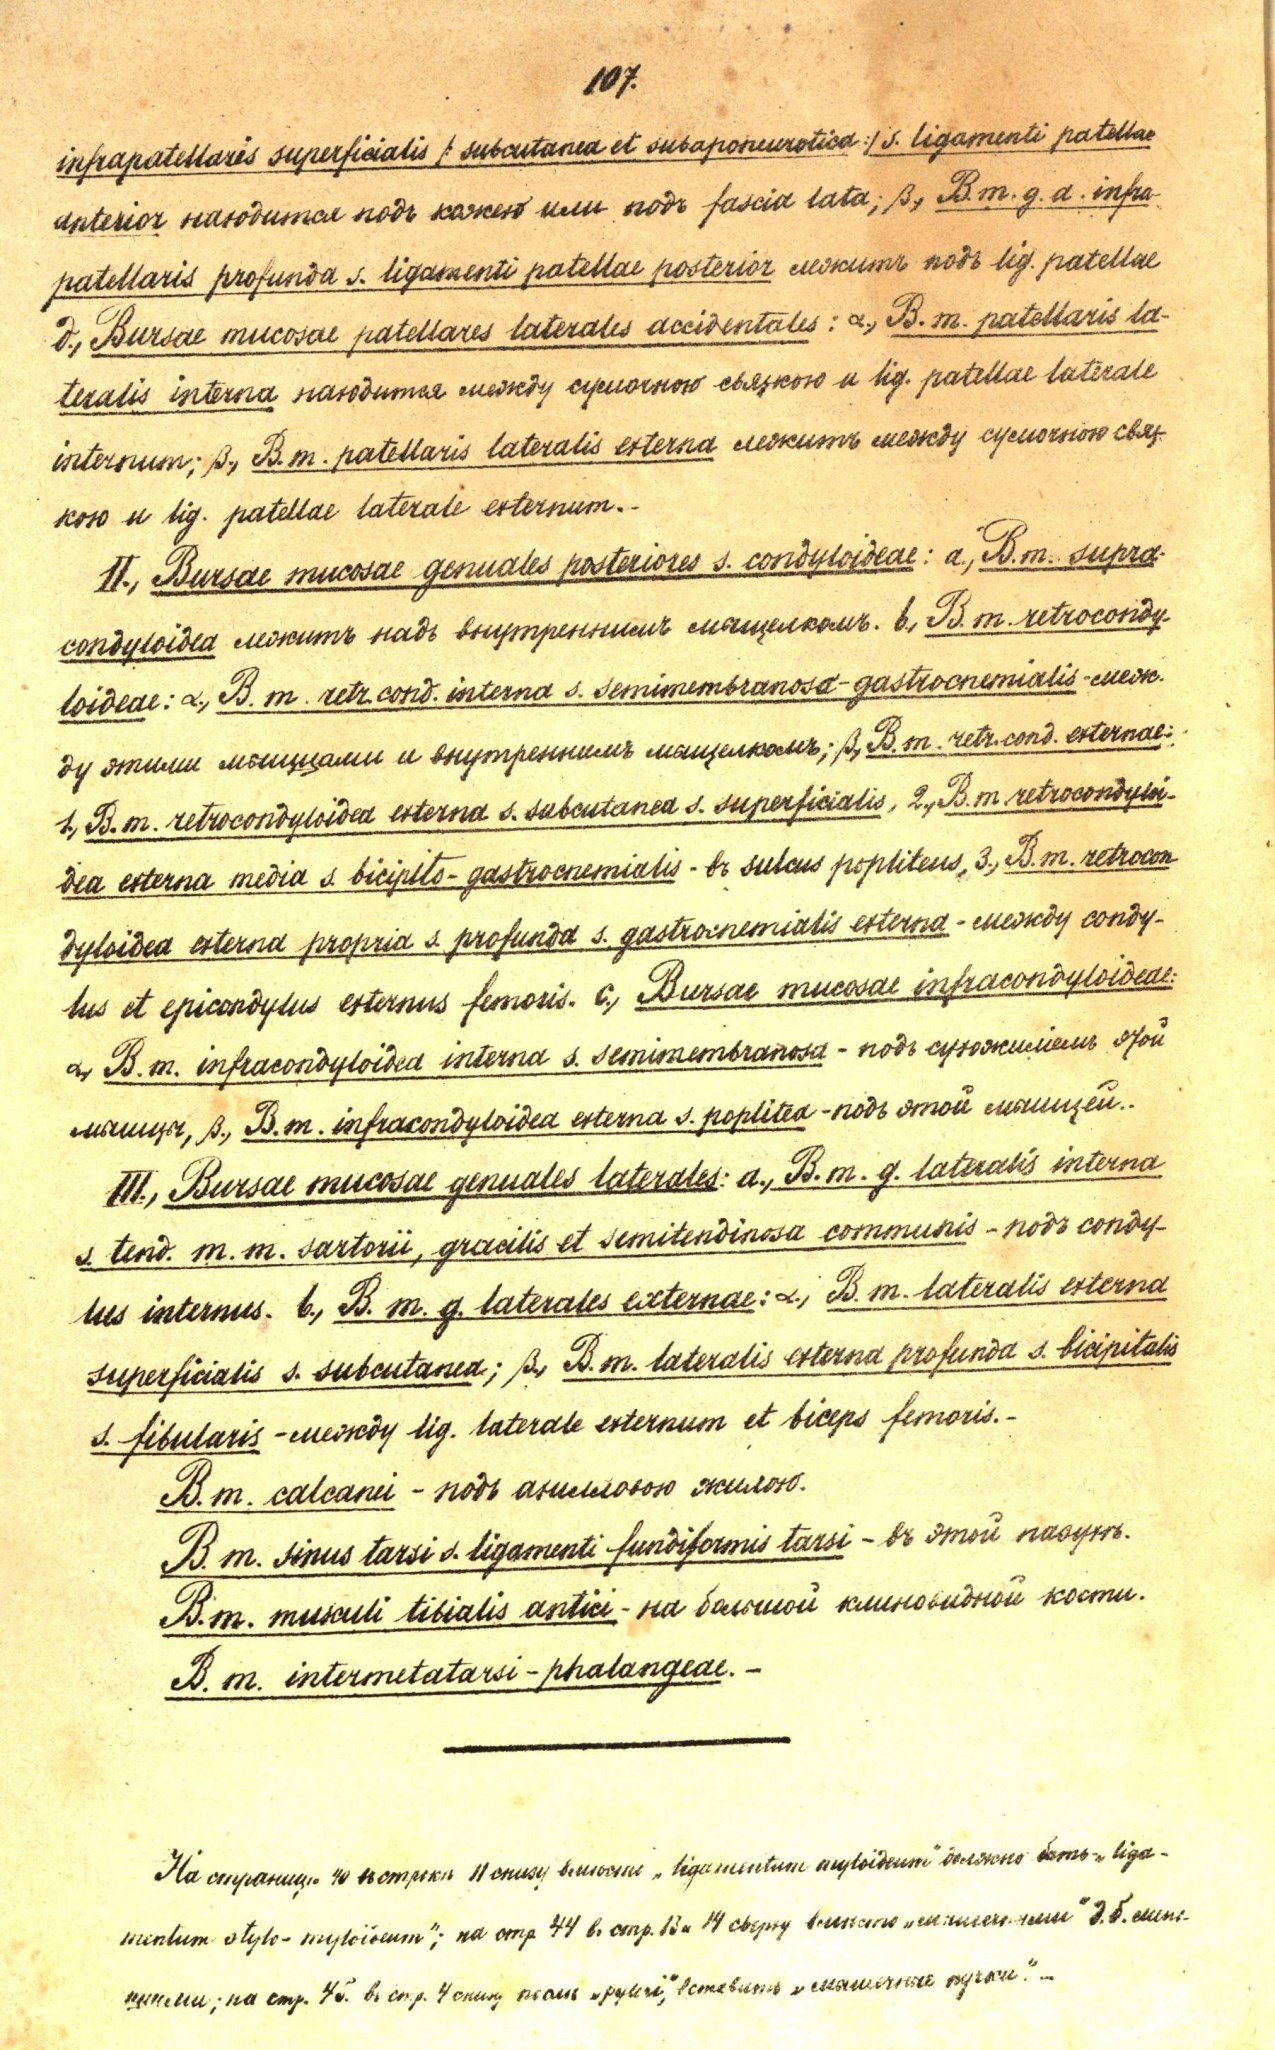 107.
infrapatellaris superficialis /: subcutanea et subaponeurotica :/ s. ligamenti patellae
anterior находится подъ кожею или подъ fascia lata; β., B. m. g. a. infra-
patellaris profunda s. ligamenti patellae posterior лежитъ подъ lig. patellae
d., Bursae mucosae patellares laterales accidentales: α., B. m. patellaris la-
teralis interna находится между сумочною связкою и lig. patellae laterale
internum; β., B. m. patellaris lateralis externa лежитъ между сумочною связ-
кою и lig. patellae laterale externum.-
II., Bursae mucosae genuales posteriores s. condyloideae: a., B. m. supra-
condyloidea лежитъ надъ внутреннимъ мыщелкомъ. b., B. m. retrocondy-
loideae: α., B. m. retr. cond. interna s. semimembranosa-gastrocnemialis-меж-
ду этими мышцами и внутреннимъ мыщелкомъ; β., B. m. retr. cond. externae:
1., B. m. retrocondyloidea externa s. subcutanea s. superficialis, 2., B. m. retrocondyloi-
dea externa media s. bicipito-gastrocnemialis - въ sulcus popliteus, 3., B. m. retrocon
dyloidea externa propria s. profunda s. gastrocnemialis externa - между condy-
lus et epicondylus externus femoris. c., Bursae mucosae infracondyloideae:
α., B. m. infracondyloidea interna s. semimembranosa - подъ сухожиліемъ этой
мышцы, β., B. m. infracondyloidea externa s. poplitea - подъ этой мышцей..
III., Bursae mucosae genuales laterales: a., B. m. g. lateralis interna
s. tend. m. m. sartorii, gracilis et semitendinosa communis - подъ condy-
lus internus. b., B. m. g. laterales externae: α., B. m. lateralis externa
superficialis s. subcutanea; β., B. m. lateralis externa profunda s. bicipitalis
s. fibularis - между lig. laterale externum et biceps femoris.-
B. m. calcanei - подъ ахилловою жилою.
B. m. sinus tarsi s. ligamenti fundiformis tarsi - въ этой пазухѣ.
B. m. musculi tibialis antici - на большой клиновидной кости.
B. m. intermetatarsi-phalangeae. -
На страницѣ 40 въ строкѣ 11 снизу вмѣсто „ligamentum myloideum" должно быть „liga-
mentum stylo-myloideum"; на стр. 44 въ стр. 13 и 14 сверху вмѣсто д. б.
на стр. 45. въ стр. 4 снизу послѣ вставить „мышечные пучки". -